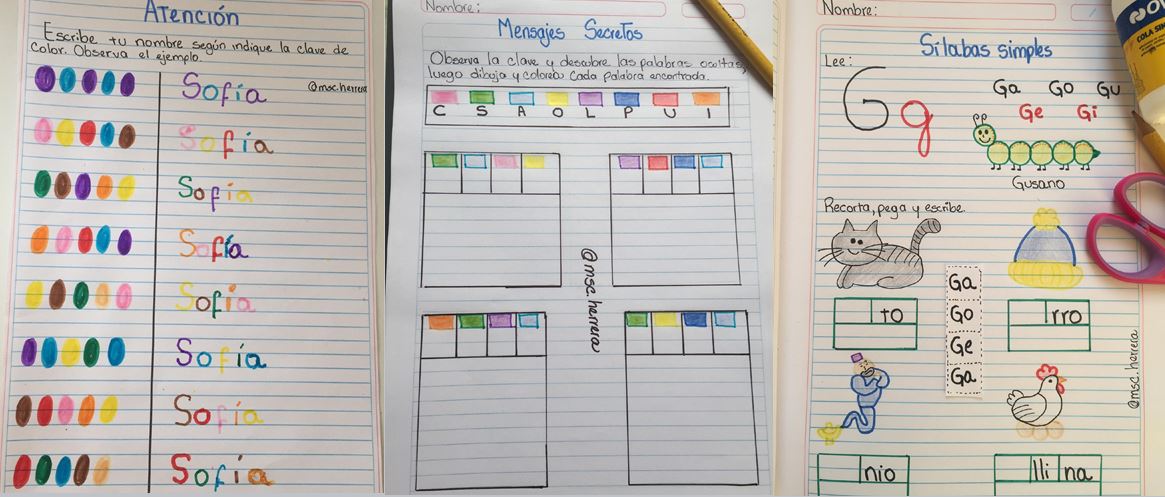 Atención
Escribe tu nombre según indique la clave de
Color. Observa el ejemplo.
Sofía
@msc.herrera
Sofía
Sofía
Sofía
Sofía
Sofía
Sofía
Sofía
Nombre:
Mensajes Secretos
Observa la clave y descubre las palabras ocultas,
luego dibuja y colorea cada palabra encontrada.
C S A O L P U I
@msc.herrera
Nombre:
Sílabas simples
Lee:
G g
Ga Go Gu
Ge Gi
Gusano
Recorta, pega y escribe.
to
Ga
Go
Ge
Ga
rro
nio
lli na
@msc.herrera
COLA